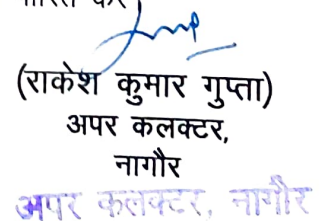 (राकेश कुमार गुप्ता)
अपर कलक्टर,
नागौर
अपर कलक्टर, नागौर